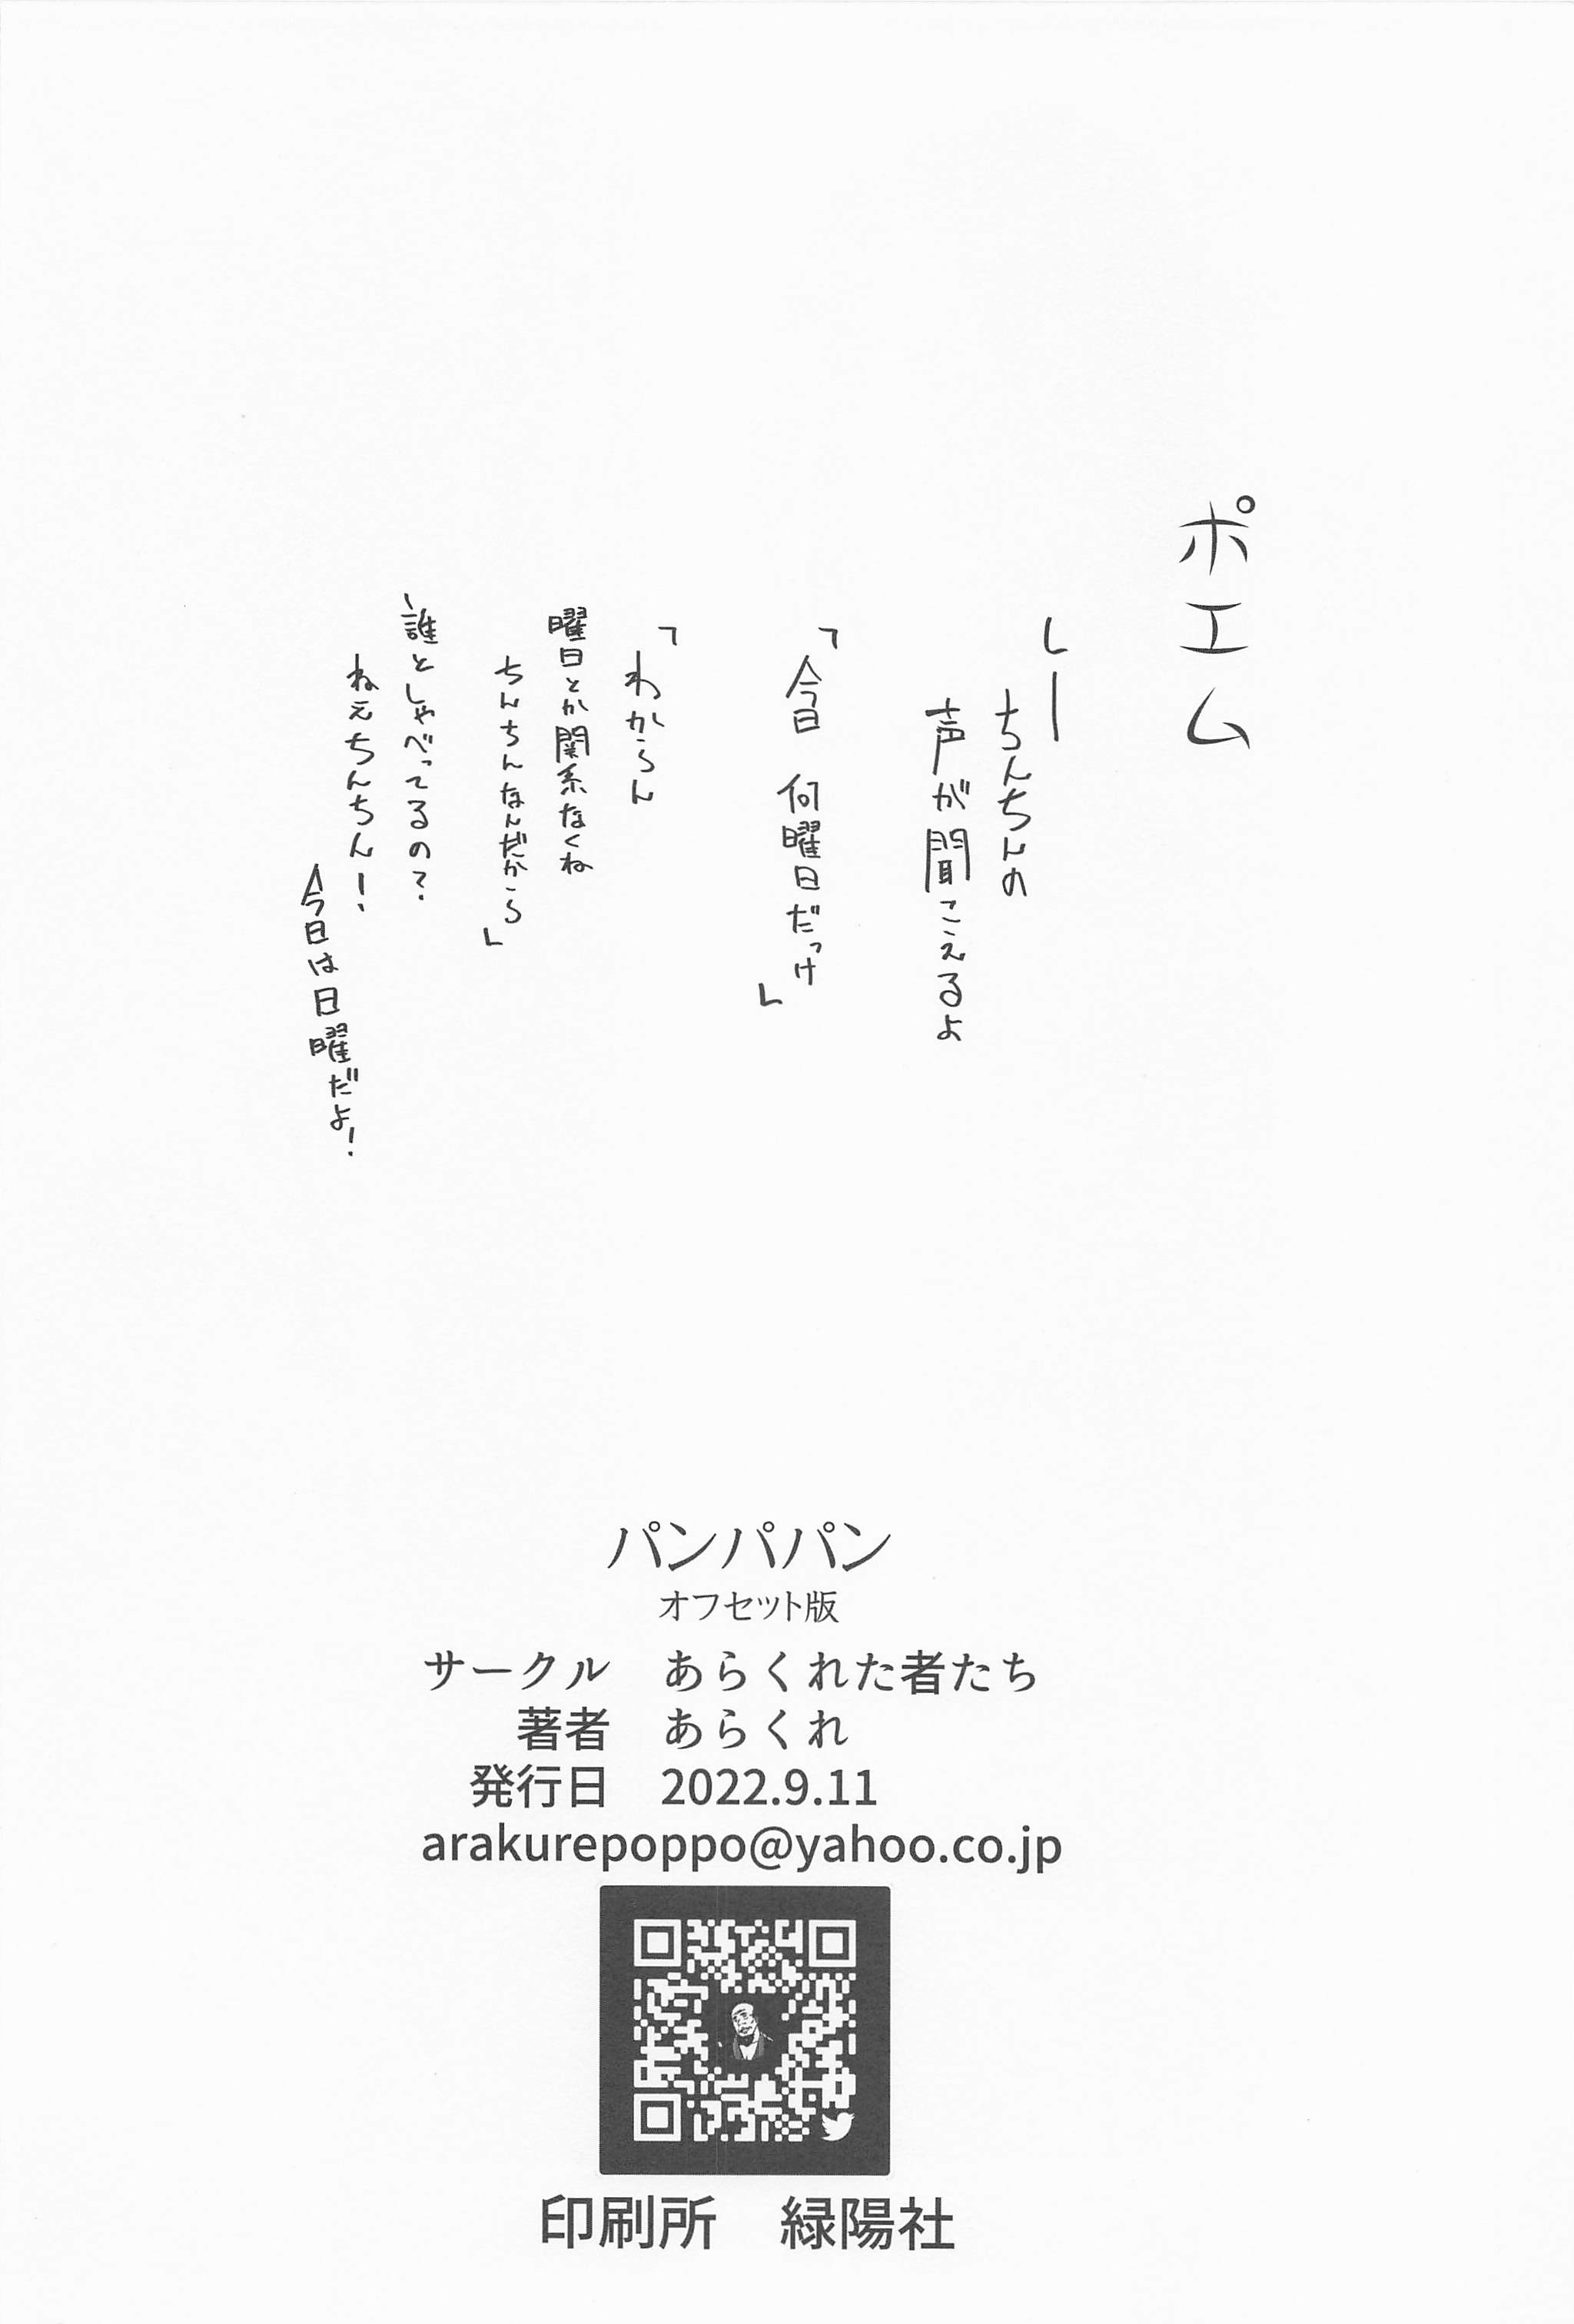 ポエム
しー
ちんちんの
声が聞こえるよ
「今日 何曜日だっけ」
「わからん
曜日とか関係なくね
ちんちんなんだから」
誰としゃべってるの?
ねえちんちん!
今日は日曜だよ!
パンパパン
オフセット版
サークル あらくれた者たち
著者 あらくれ
発行日 2022.9.11
arakurepoppo@yahoo.co.jp
印刷所 緑陽社